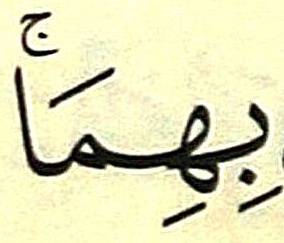 بِهِمَاۚ